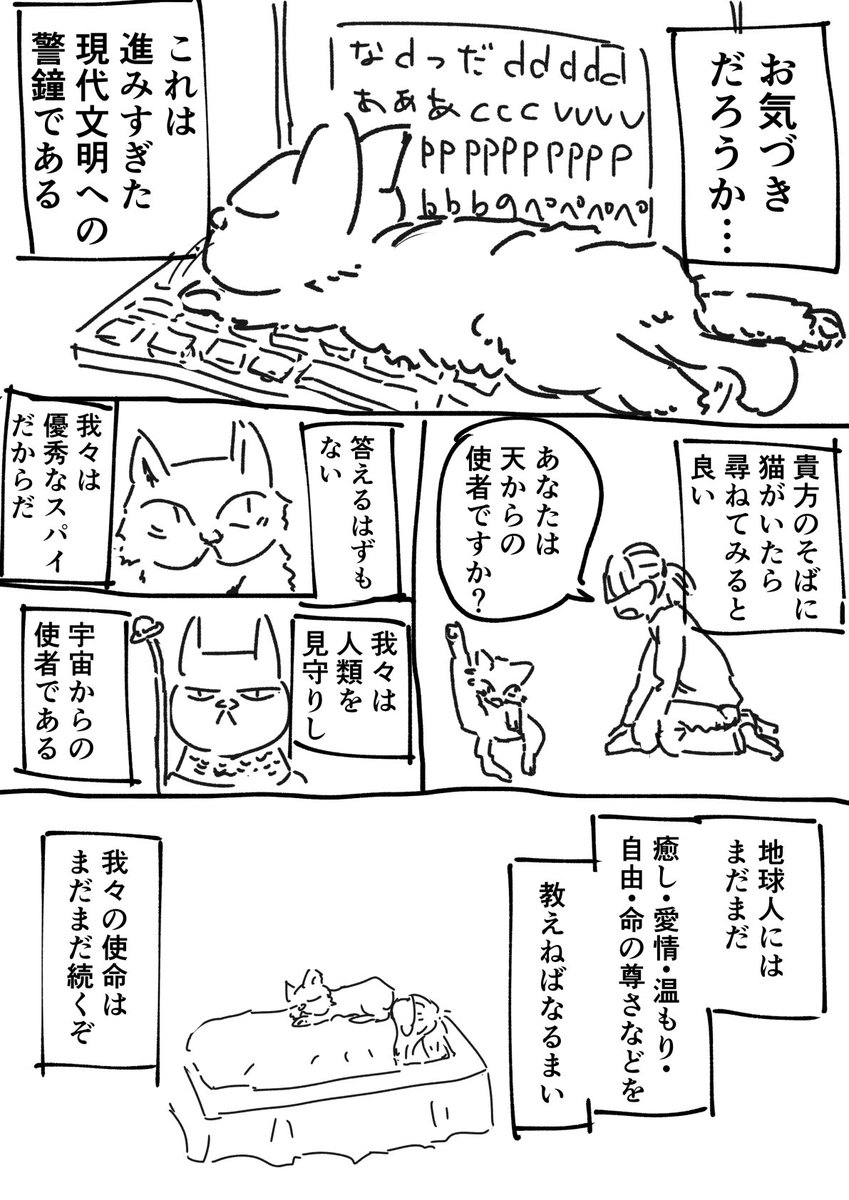 お気づき
だろうか…
なdっだddddd
あああcccvvvv
ppppppppp
bbbのぺぺぺぺ
これは
進みすぎた
現代文明への
警鐘である
貴方のそばに
猫がいたら
尋ねてみると
良い
あなたは
天からの
使者ですか?
答えるはずも
ない
我々は
優秀なスパイ
だからだ
我々は
人類を
見守りし
宇宙からの
使者である
地球人には
まだまだ
癒し・愛情・温もり・
自由・命の尊さなどを
教えねばなるまい
我々の使命は
まだまだ続くぞ